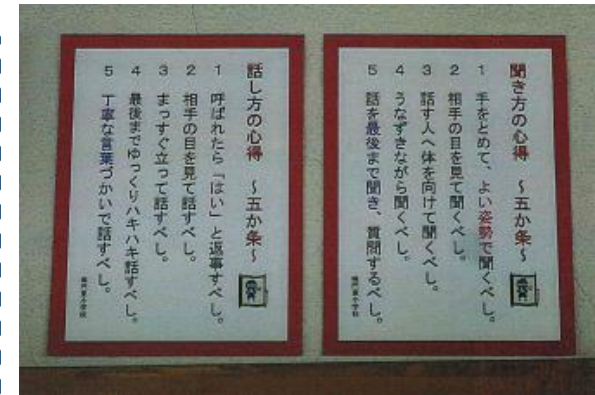 聞き方の心得 ～五か条～
1 手をとめて、よい姿勢で聞くべし。
2 相手の目を見て聞くべし。
3 話す人へ体を向けて聞くべし。
4 うなずきながら聞くべし。
5 話を最後まで聞き、質問するべし。
話し方の心得 ～五か条～
1 呼ばれたら「はい」と返事すべし。
2 相手の目を見て話すべし。
3 まっすぐ立って話すべし。
4 最後までゆっくりハキハキ話すべし。
5 丁寧な言葉づかいで話すべし。